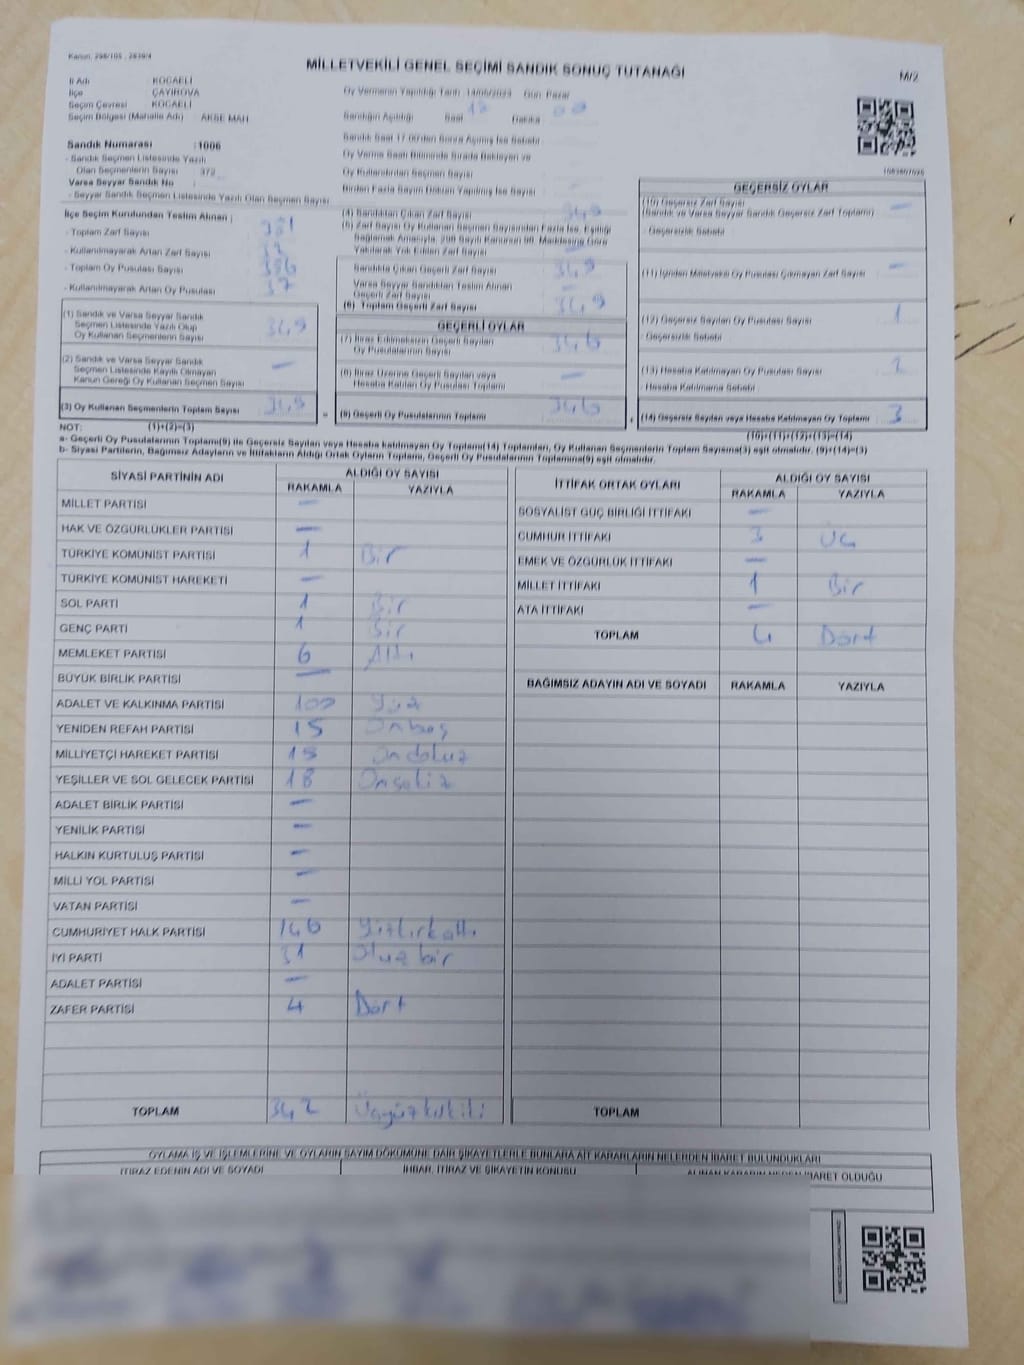 Kanun: 298/105 , 2839/4
MİLLETVEKİLİ GENEL SEÇİMİ SANDIK SONUÇ TUTANAĞI
M/2
İl Adı : KOCAELİ
İlçe : ÇAYIROVA
Seçim Çevresi : KOCAELİ
Seçim Bölgesi (Mahalle Adı) : AKSE MAH
Oy Vermenin Yapıldığı Tarih : 14/05/2023 Gün: Pazar
Sandığın Açıldığı Saat Dakika 00
Sandık Saat 17.00'den Sonra Açılmış İse Sebebi
Oy Verme Saati Bitiminde Sırada Bekleyen ve
Oy Kullandırılan Seçmen Sayısı
Birden Fazla Sayım Döküm Yapılmış İse Sayısı
Sandık Numarası :1006
- Sandık Seçmen Listesinde Yazılı
Olan Seçmenlerin Sayısı 372
Varsa Seyyar Sandık No
- Seyyar Sandık Seçmen Listesinde Yazılı Olan Seçmen Sayısı
İlçe Seçim Kurulundan Teslim Alınan ;
- Toplam Zarf Sayısı
- Kullanılmayarak Artan Zarf Sayısı
- Toplam Oy Pusulası Sayısı 386
- Kullanılmayarak Artan Oy Pusulası 37
(1) Sandık ve Varsa Seyyar Sandık
Seçmen Listesinde Yazılı Olup
Oy Kullanan Seçmenlerin Sayısı 349
(2) Sandık ve Varsa Seyyar Sandık
Seçmen Listesinde Kayıtlı Olmayan
Kanun Gereği Oy Kullanan Seçmen Sayısı —
(3) Oy Kullanan Seçmenlerin Toplam Sayısı 349
(4) Sandıktan Çıkan Zarf Sayısı 349
(5) Zarf Sayısı Oy Kullanan Seçmen Sayısından Fazla İse, Eşitliği
Sağlamak Amacıyla, 298 Sayılı Kanunun 98. Maddesine Göre
Yakılarak Yok Edilen Zarf Sayısı —
Sandıkta Çıkan Geçerli Zarf Sayısı 349
Varsa Seyyar Sandıktan Teslim Alınan
Geçerli Zarf Sayısı —
(6) Toplam Geçerli Zarf Sayısı 349
GEÇERLİ OYLAR
(7) İtiraz Edilmeksizin Geçerli Sayılan
Oy Pusulalarının Sayısı 346
(8) İtiraz Üzerine Geçerli Sayılan veya
Hesaba Katılan Oy Pusulası Toplamı —
(9) Geçerli Oy Pusulalarının Toplamı 346
GEÇERSİZ OYLAR
(10) Geçersiz Zarf Sayısı —
(Sandık ve Varsa Seyyar Sandık Geçersiz Zarf Toplamı)
- Geçersizlik Sebebi
(11) İçinden Milletvekili Oy Pusulası Çıkmayan Zarf Sayısı —
(12) Geçersiz Sayılan Oy Pusulası Sayısı 1
- Geçersizlik Sebebi
(13) Hesaba Katılmayan Oy Pusulası Sayısı 2
- Hesaba Katılmama Sebebi
(14) Geçersiz Sayılan veya Hesaba Katılmayan Oy Toplamı 3
NOT: (1)+(2)=(3) (10)+(11)+(12)+(13)=(14)
a- Geçerli Oy Pusulalarının Toplamı(9) ile Geçersiz Sayılan veya Hesaba katılmayan Oy Toplamı(14) Toplamları, Oy Kullanan Seçmenlerin Toplam Sayısına(3) eşit olmalıdır. (9)+(14)=(3)
b- Siyasi Partilerin, Bağımsız Adayların ve İttifakların Aldığı Ortak Oyların Toplamı, Geçerli Oy Pusulalarının Toplamına(9) eşit olmalıdır.
SİYASİ PARTİNİN ADI ALDIĞI OY SAYISI
RAKAMLA YAZIYLA
MİLLET PARTİSİ —
HAK VE ÖZGÜRLÜKLER PARTİSİ —
TÜRKİYE KOMÜNİST PARTİSİ 1 Bir
TÜRKİYE KOMÜNİST HAREKETİ —
SOL PARTİ 1 Bir
GENÇ PARTİ 1 Bir
MEMLEKET PARTİSİ 6 Altı
BÜYÜK BİRLİK PARTİSİ —
ADALET VE KALKINMA PARTİSİ 100 Yüz
YENİDEN REFAH PARTİSİ 15 Onbeş
MİLLİYETÇİ HAREKET PARTİSİ 19 Ondokuz
YEŞİLLER VE SOL GELECEK PARTİSİ 18 Onsekiz
ADALET BİRLİK PARTİSİ —
YENİLİK PARTİSİ —
HALKIN KURTULUŞ PARTİSİ —
MİLLİ YOL PARTİSİ —
VATAN PARTİSİ —
CUMHURİYET HALK PARTİSİ 146 Yüzkırkaltı
İYİ PARTİ 31 Otuzbir
ADALET PARTİSİ —
ZAFER PARTİSİ 4 Dört
TOPLAM 342 Üçyüzkırkiki
İTTİFAK ORTAK OYLARI ALDIĞI OY SAYISI
RAKAMLA YAZIYLA
SOSYALİST GÜÇ BİRLİĞİ İTTİFAKI —
CUMHUR İTTİFAKI 3 Üç
EMEK VE ÖZGÜRLÜK İTTİFAKI —
MİLLET İTTİFAKI 1 Bir
ATA İTTİFAKI —
TOPLAM 4 Dört
BAĞIMSIZ ADAYIN ADI VE SOYADI RAKAMLA YAZIYLA
TOPLAM
OYLAMA İŞ VE İŞLEMLERİNE VE OYLARIN SAYIM DÖKÜMÜNE DAİR ŞİKAYETLERLE BUNLARA AİT KARARLARIN NELERDEN İBARET BULUNDUKLARI
İTİRAZ EDENİN ADI VE SOYADI İHBAR, İTİRAZ VE ŞİKAYETİN KONUSU ALINAN KARARIN NEDEN İBARET OLDUĞU